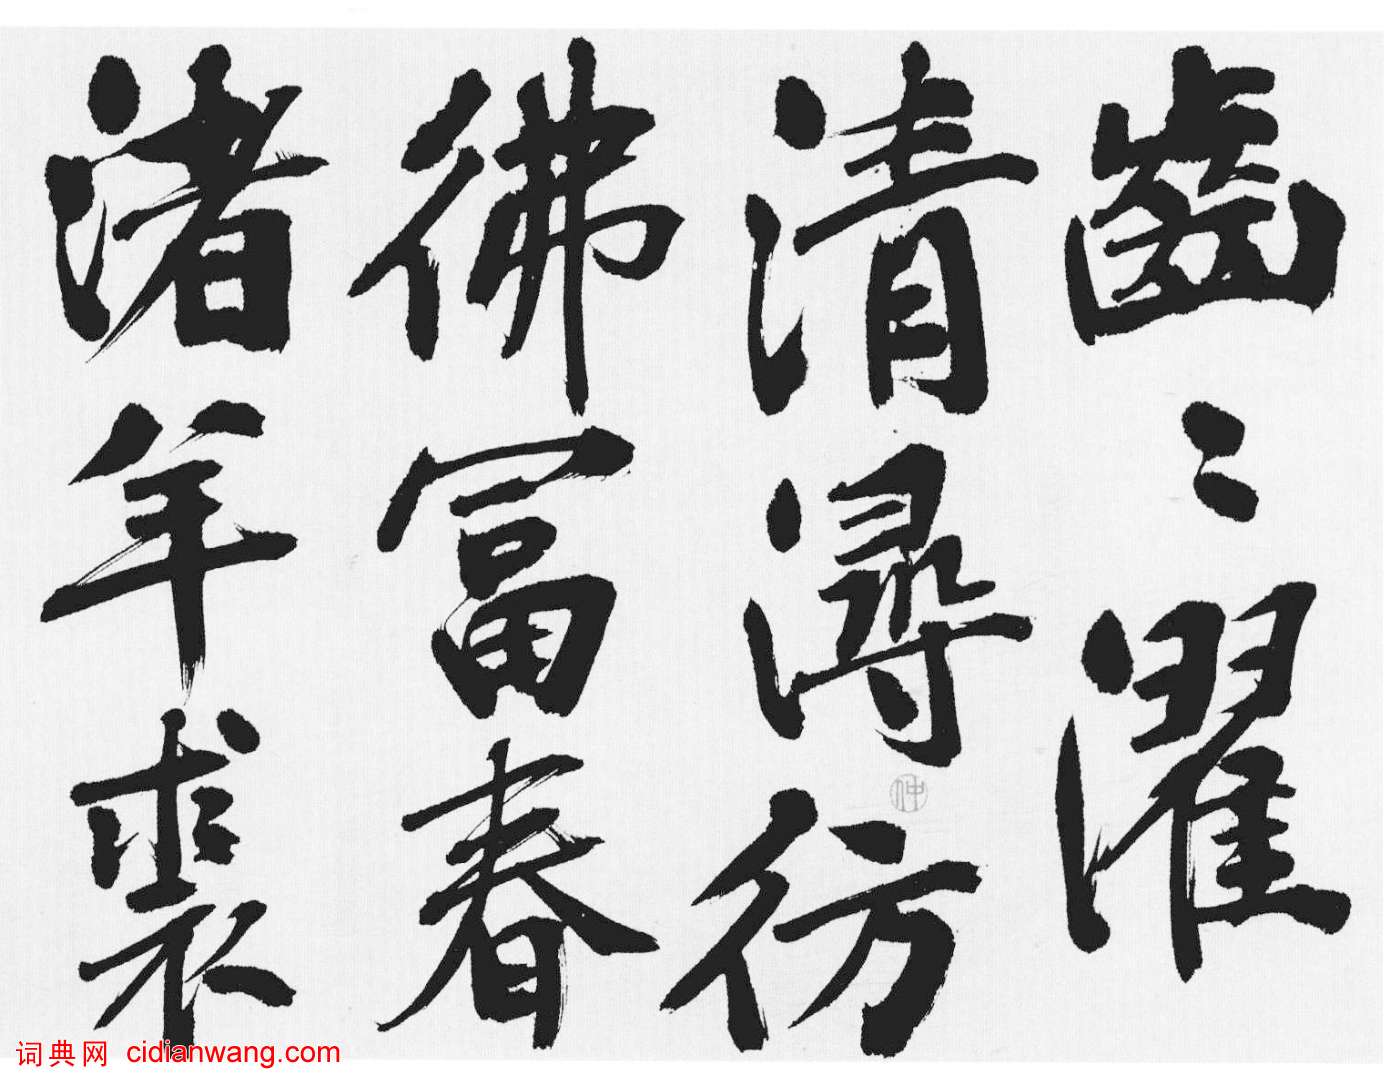 齒〻濯
清潯彷
彿富春
渚羊裘
仲
词典网 cidianwang.com